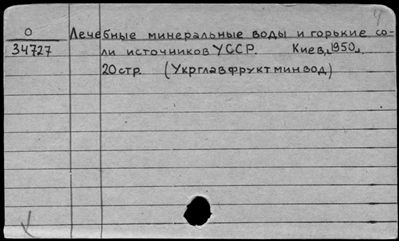 О Лечебные минеральные воды и горькие со-
34727 ли источников УССР. Киев, 1950.
20 стр. (Укрглавфруктминвод)